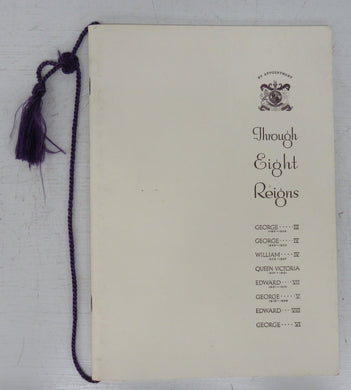 BY APPOINTMENT
Through
Eight
Reigns
GEORGE···· III
GEORGE···· IV
WILLIAM···· IV
QUEEN VICTORIA
EDWARD··· VII
GEORGE···· V
EDWARD··· VIII
GEORGE···· VI